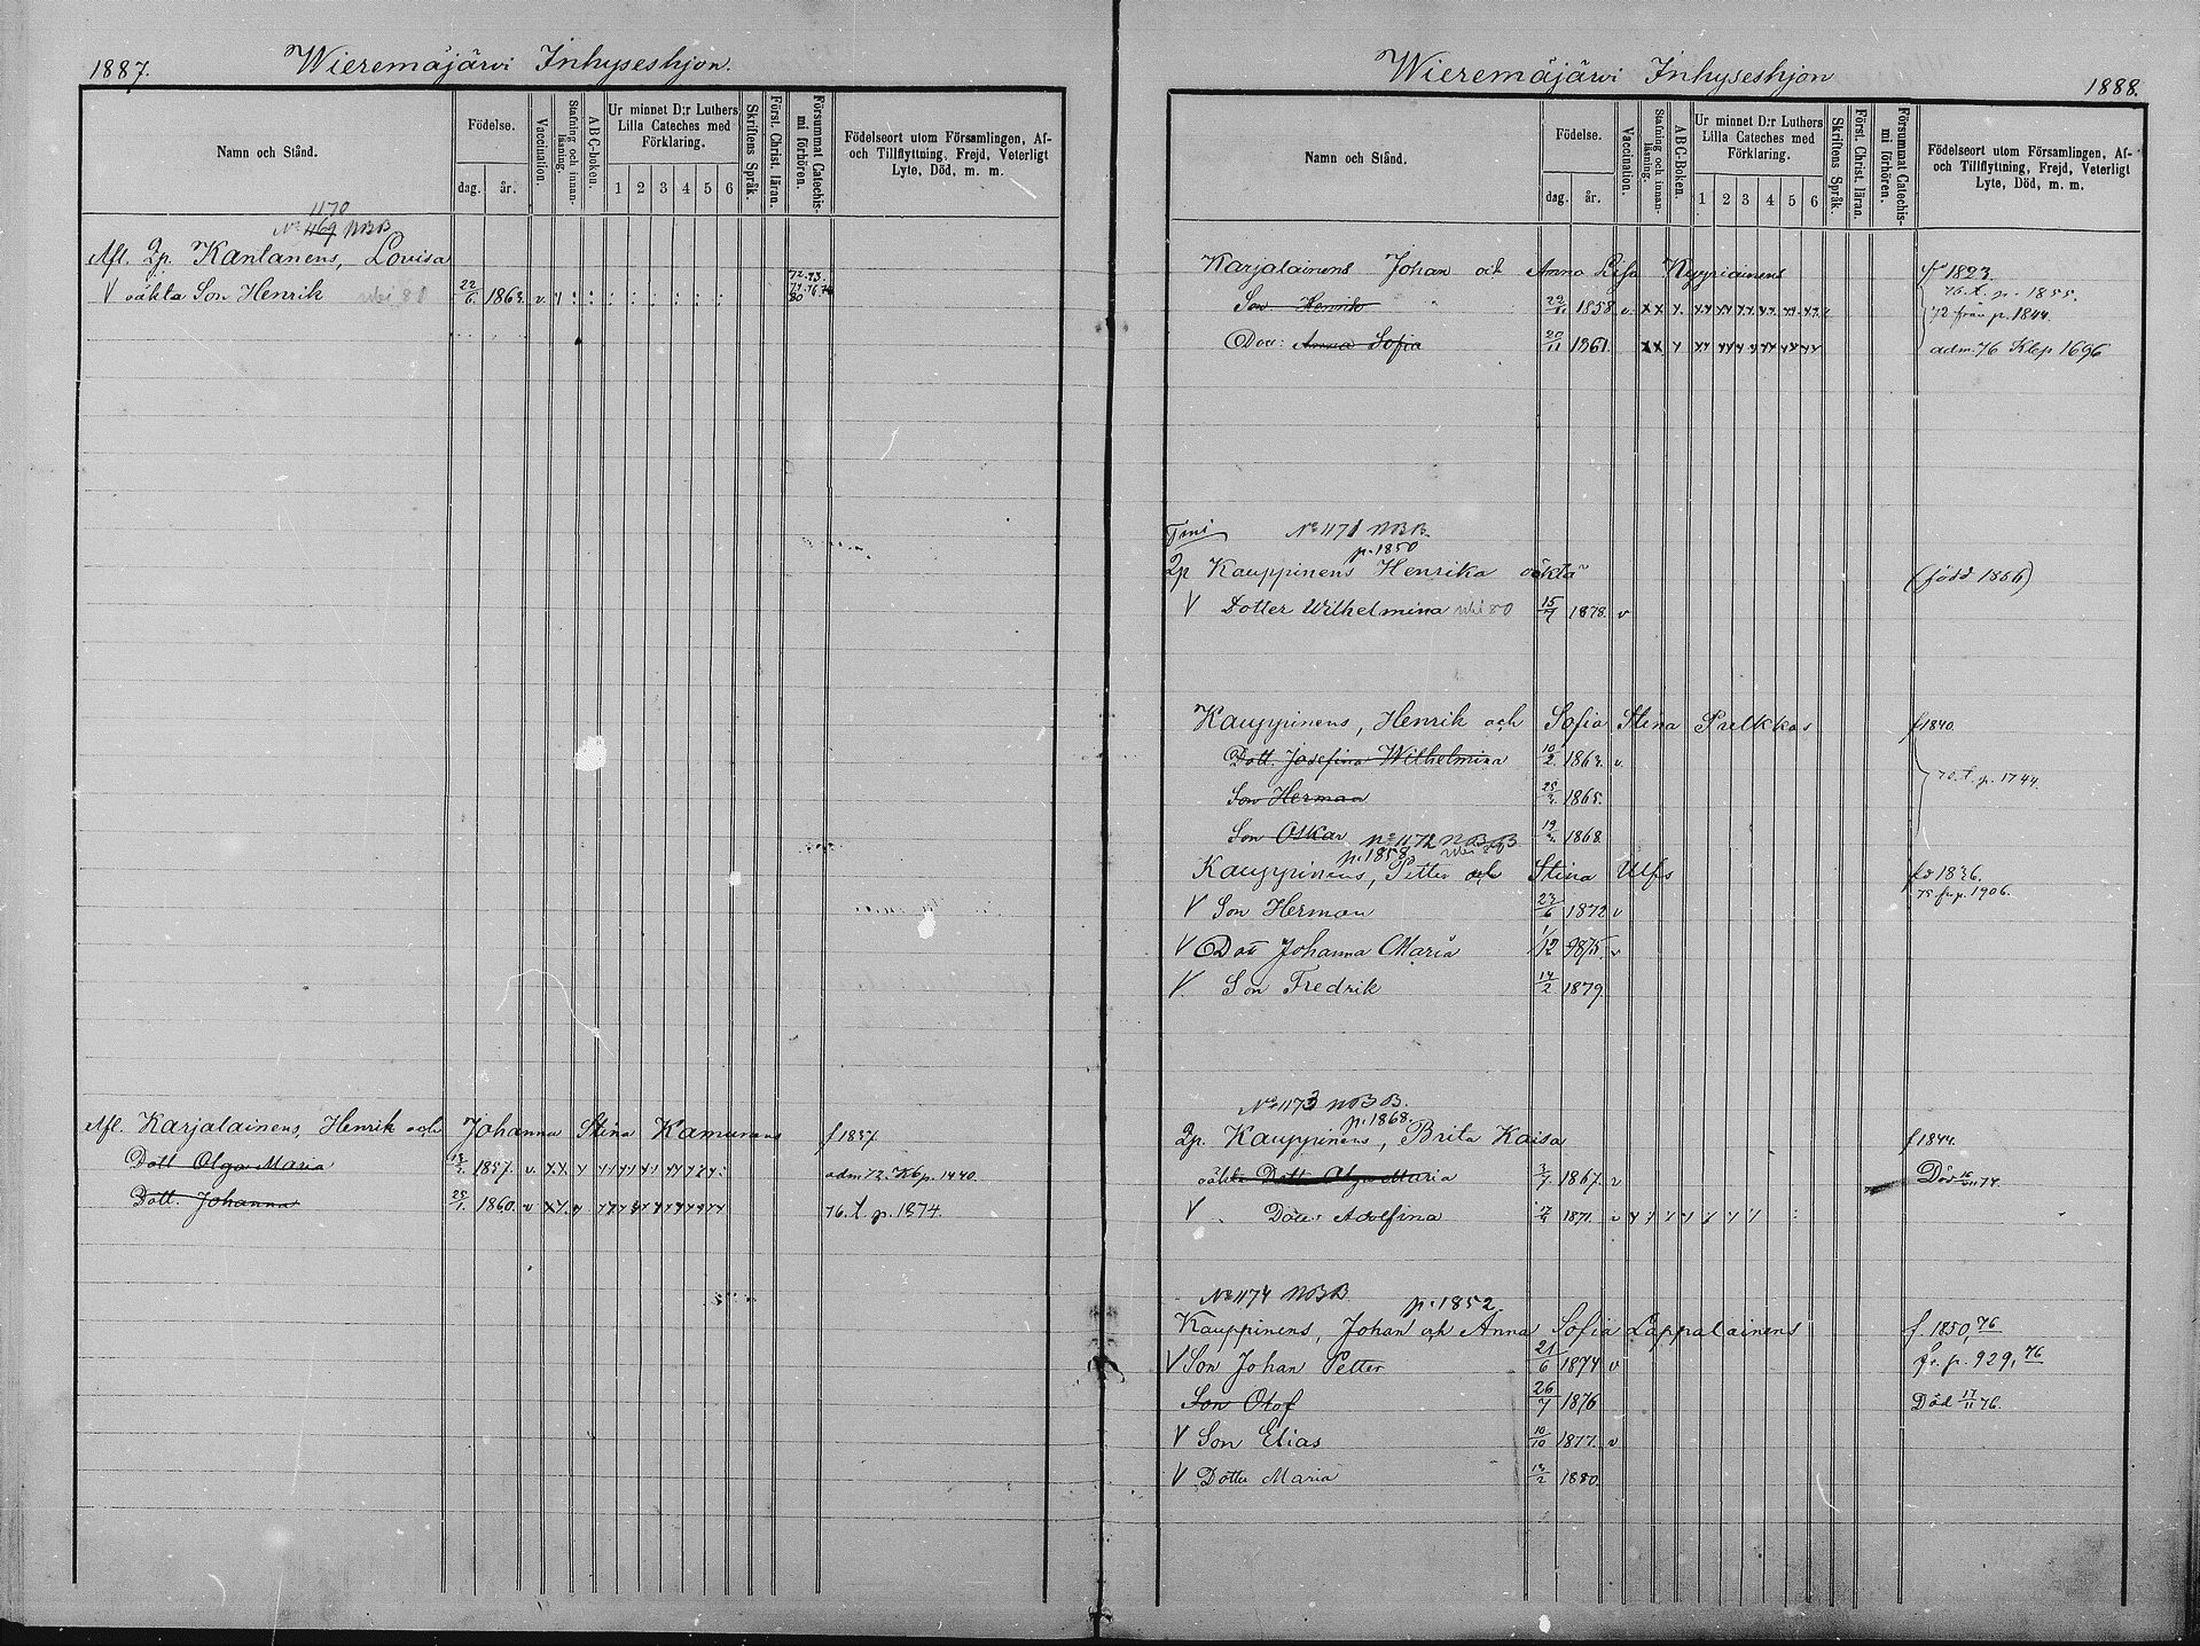 1887.
Wieremäjärwi Inhyseshjon.
Namn och Stånd.
Födelse.
dag.
år.
Vaccination.
Stafning och innan-
läsning.
ABC-boken.
Ur minnet D:r Luthers
Lilla Cateches med
Förklaring.
1 2 3 4 5 6
Skriftens Språk.
Först. Christ. läran.
Försummat Catechis-
mi förhören.
Födelseort utom Församlingen, Af-
och Tillflyttning, Frejd, Veterligt
Lyte, Död, m. m.
1170
No 1169 NBB
Afl. Qp. Kantanens, Lovisa
V oäkta Son Henrik 22/6 1863. v.
Afl. Karjalainens, Henrik och Johanna Stina Kamunens f 1837.
Dott Olga Maria 1857. v. adm 72. Kbp. 1440.
Dott. Johanna 1860. v 76. t. p. 1874.
Wieremäjärwi Inhyseshjon
1888.
Namn och Stånd.
Födelse.
dag.
år.
Vaccination.
Stafning och innan-
läsning.
ABC-Boken.
Ur minnet D:r Luthers
Lilla Cateches med
Förklaring.
1 2 3 4 5 6
Skriftens Språk.
Först. Christ. läran.
Försummat Catechis-
mi förhören.
Födelseort utom Församlingen, Af-
och Tillflyttning, Frejd, Veterligt
Lyte, Död, m. m.
Karjalainens Johan och Anna Lisa Kyyriäinens f 1823.
76. t. p. 1855.
Son Henrik 1858 v. 72 från p. 1844.
Dott: Anna Sofia 1861. adm. 76 Kbp 1696
No 1171 NBB.
p. 1850
Qp Kauppinens Henrika oäkta (född 1856)
V Dotter Wilhelmina 15/7 1878. v
Kauppinens, Henrik och Sofia Stina Pulkkas f 1840.
Dott. Josefina Wilhelmina 10/2 1863. v.
70. t. p. 1744.
Son Herman 1865.
Son Oskar 1868. No 1172 NBB
p. 1858
Kauppinens, Petter och Stina Ulfs fd 1836.
75 fr. p. 1906.
V Son Herman 23/6 1872 v
V Dott Johanna Maria 1/12 1875. v
V. Son Fredrik 14/2 1879.
No 1173 NBB.
p. 1868.
Qp. Kauppinens, Brita Kaisa f 1844.
oäkta Dott Olga Maria 3/7 1867. v Död
V Dotter Adolfina 1871. v
No 1174 NBB p. 1852.
Kauppinens, Johan och Anna Sofia Lappalainens f. 1850, 76
V Son Johan Petter 21/6 1874 v fr. p. 929, 76
Son Olof 26/7 1876 Död 17/11 76.
V Son Elias 10/10 1877. v
V Dotter Maria 1880.